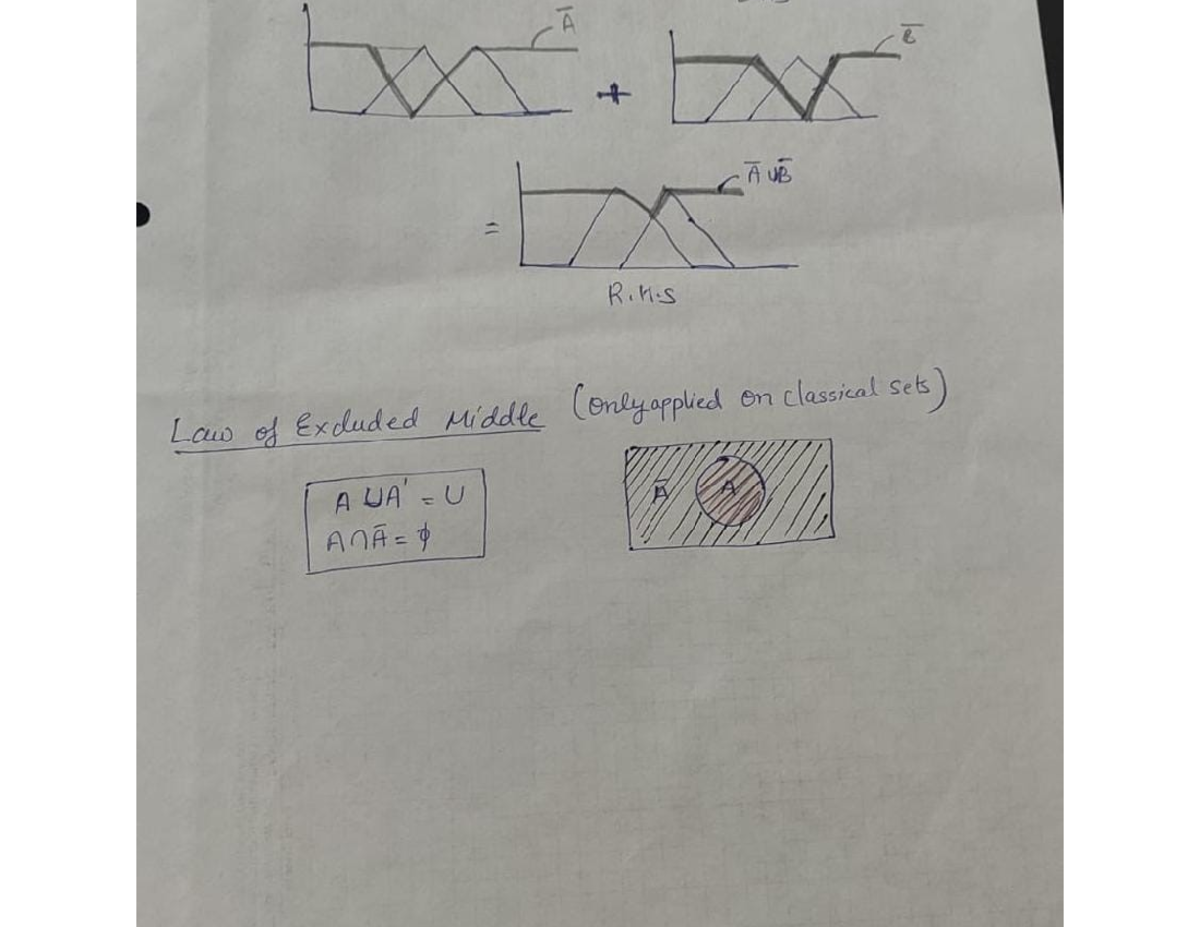 Ā
+
B̄
= Ā ∪ B̄
R.H.S
Law of Excluded Middle (Only applied on classical sets)
A ∪ A' = U
A ∩ Ā = ϕ
Ā A